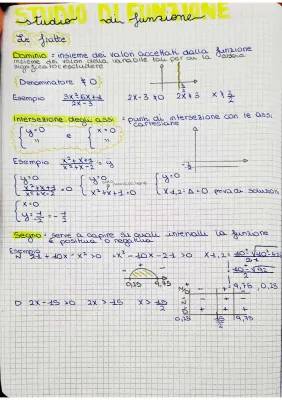 STUDIO DI FUNZIONE
studio di funzione
Le fratte:
Dominio = insieme dei valori accettati dalla funzione
insieme dei valori della variabile tali per cui la
significato escludere
Denominatore ≠ 0
Esempio 3x²-6x+1 / 2x-3 2x-3≠0 2x≠3 x≠3/2
Intersezione degli assi = punti di intersezione con le assi
cartesiane
{y=0 e {x=0
Esempio x²+x+1 / x²+x-2 = y
{y=0 {y=0 {y=0
x²+x+1 / x²+x-2 = 0 x²+x+1=0 x1,2: Δ<0 priva di soluzioni
{x=0
y=-1/2 = -1/2
Segno = serve a capire su quali intervalli la funzione
è positiva o negativa
Esempio
N 21+10x-x²>0 -x²-10x-21>0
0,25 9,75
D 2x-15>0 2x>15 x>15/2
0,25 15/2 9,75